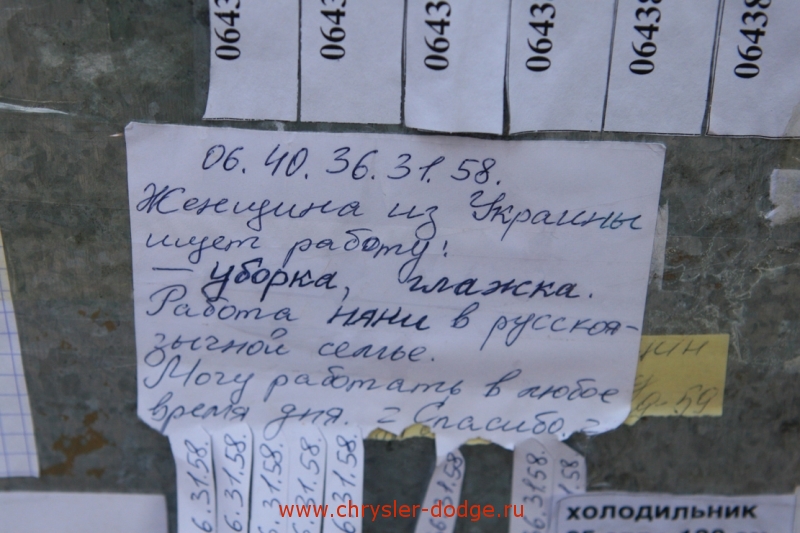 06438
06438
06438
06438
06438
06438
06. 40. 36. 31. 58.
Женщина из Украины
ищет работу:
— уборка, глажка.
Работа няни в русскоя-
зычной семье.
Могу работать в любое
время дня. = Спасибо. =
6.31.58.
6.31.58.
6.31.58.
6.31.58.
6.31.58.
6.31.58.
6.31.58.
58
9-59
www.chrysler-dodge.ru
холодильник